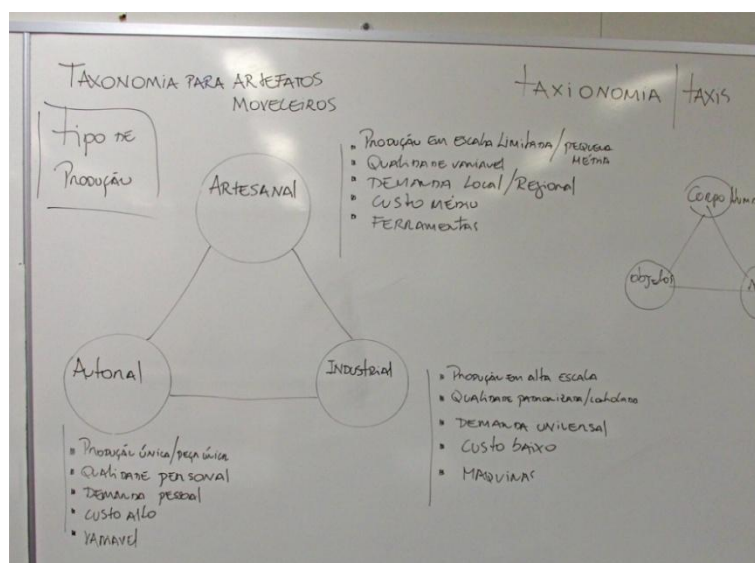 TAXONOMIA PARA ARTEFATOS
MOVELEIROS
TAXIONOMIA | TAXIS
TIPO DE
PRODUÇÃO
ARTESANAL
• PRODUÇÃO EM ESCALA LIMITADA/PEQUENA
MÉDIA
• QUALIDADE VARIÁVEL
• DEMANDA LOCAL/REGIONAL
• CUSTO MÉDIO
• FERRAMENTAS
CORPO
OBJETOS
AUTORAL
INDUSTRIAL
• PRODUÇÃO EM ALTA ESCALA
• QUALIDADE PADRONIZADA/
• DEMANDA UNIVERSAL
• CUSTO BAIXO
• MAQUINAS
• PRODUÇÃO ÚNICA/PEÇA ÚNICA
• QUALIDADE PERSONAL
• DEMANDA PESSOAL
• CUSTO ALTO